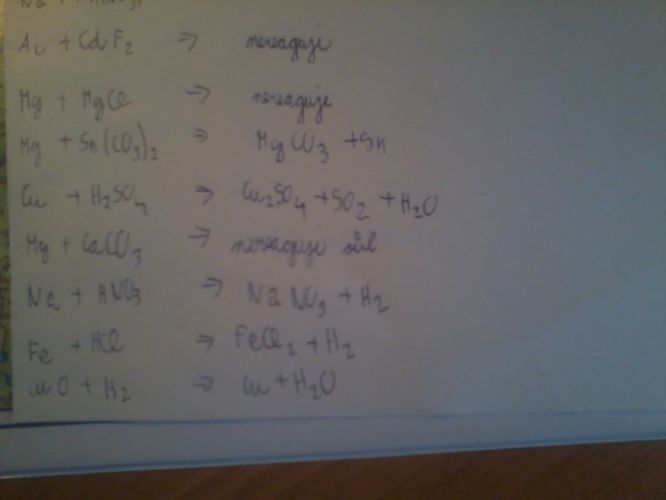 Au + CdF2 => nereaguje
Mg + MgCl => nereaguje
Mg + Sn(CO3)2 => MgCO3 + Sn
Cu + H2SO4 => Cu2SO4 + SO2 + H2O
Mg + CaCO3 => nereaguje sůl
Na + HNO3 => NaNO3 + H2
Fe + HCl => FeCl2 + H2
CuO + H2 => Cu + H2O